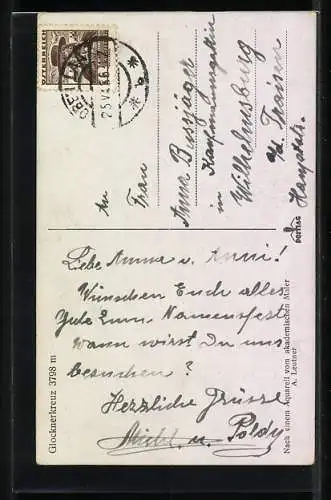 ÖSTERREICH
25.VI.36
An
Frau
Anna Bussjäger
Kaufmannsgattin
in
Wilhelmsburg
a/d. Traisen
Hauptstr.
Liebe Anna u. Anni!
Wünschen Euch alles
Gute zum Namensfest
Wann wirst Du uns
besuchen?
Herzliche Grüsse
Michl u. Poldy
Glocknerkreuz 3798 m
Nach einem Aquarell vom akademischen Maler
A. Leutner